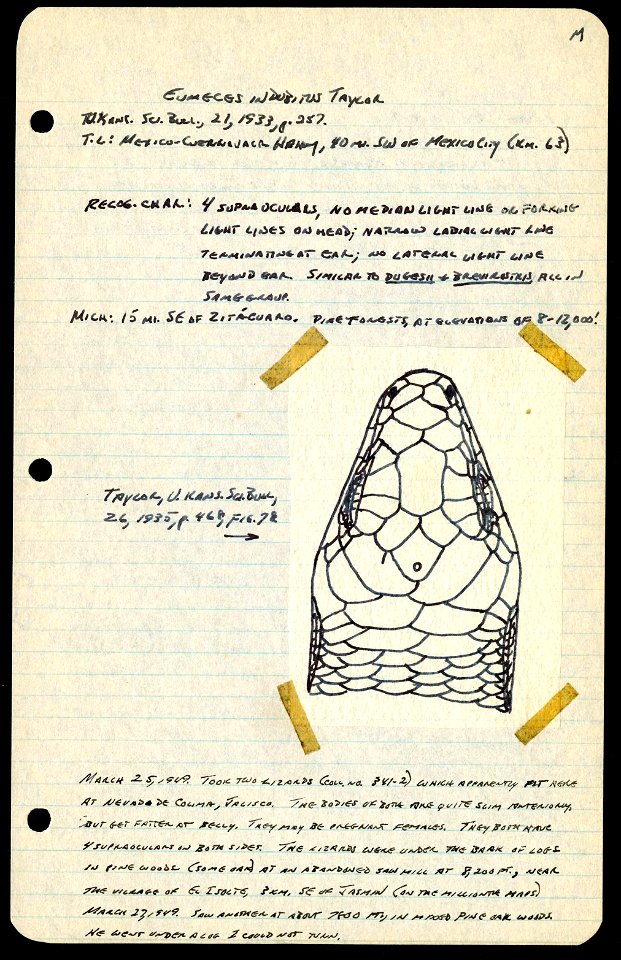 M
EUMECES INDUBITUS TAYLOR
U. KANS. SCI. BULL., 21, 1933, p. 257.
T.L.: MEXICO-CUERNAVACA HIGHWAY, 40 MI. SW OF MEXICO CITY (KM. 63)
RECOG. CHAR: 4 SUPRAOCULARS, NO MEDIAN LIGHT LINE OR FORKING
LIGHT LINES ON HEAD; NARROW LABIAL LIGHT LINE
TERMINATING AT EAR; NO LATERAL LIGHT LINE
BEYOND EAR. SIMILAR TO DUGESII & BREVIROSTRIS, ALL IN
SAME GROUP.
MICH: 15 MI. SE OF ZITÁCUARO. PINE FORESTS, AT ELEVATIONS OF 8-12,000!
TAYLOR, U. KANS. SCI. BULL,
26, 1935, p. 468, FIG. 78
MARCH 25, 1949. TOOK TWO LIZARDS (COLL. NO. 341-2) WHICH APPARENTLY FIT HERE
AT NEVADO DE COLIMA, JALISCO. THE BODIES OF BOTH ARE QUITE SLIM ANTERIORLY,
BUT GET FATTER AT BELLY. THEY MAY BE PREGNANT FEMALES. THEY BOTH HAVE
4 SUPRAOCULARS ON BOTH SIDES. THE LIZARDS WERE UNDER THE BARK OF LOGS
IN PINE WOODS (SOME OAK) AT AN ABANDONED SAW MILL AT 8,200 FT., NEAR
THE VILLAGE OF EL ISOTE, 3 KM. SE OF JASMIN (ON THE MILLIONTH MAPS)
MARCH 27, 1949. SAW ANOTHER AT ABOUT FT, IN MIXED PINE OAK WOODS.
HE WENT UNDER A LOG I COULD NOT TURN.